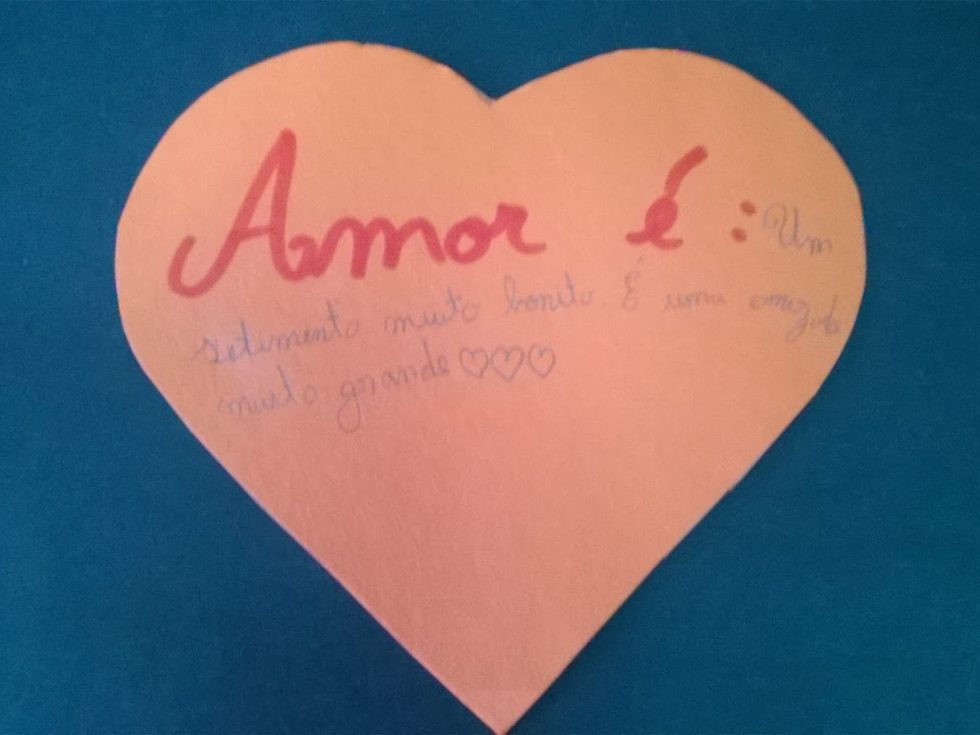 Amor é: Um
setimento muito bonito. É uma amizade
muito grande♡♡♡